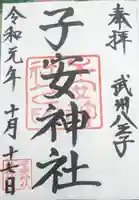 奉拝
武州八王子
子安神社
令和元年
十月十七日